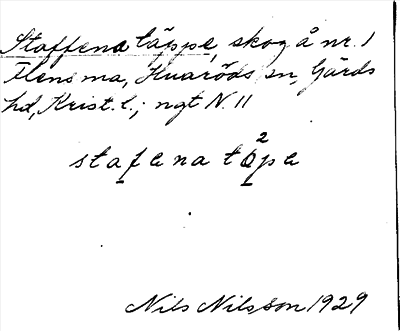 Staffena täppe, skog å nr. 1
Flensma, Huaröds sn, Gärds
hd, Krist. l.; ngt N. 11
stafena täpe
Nils Nilsson 1929